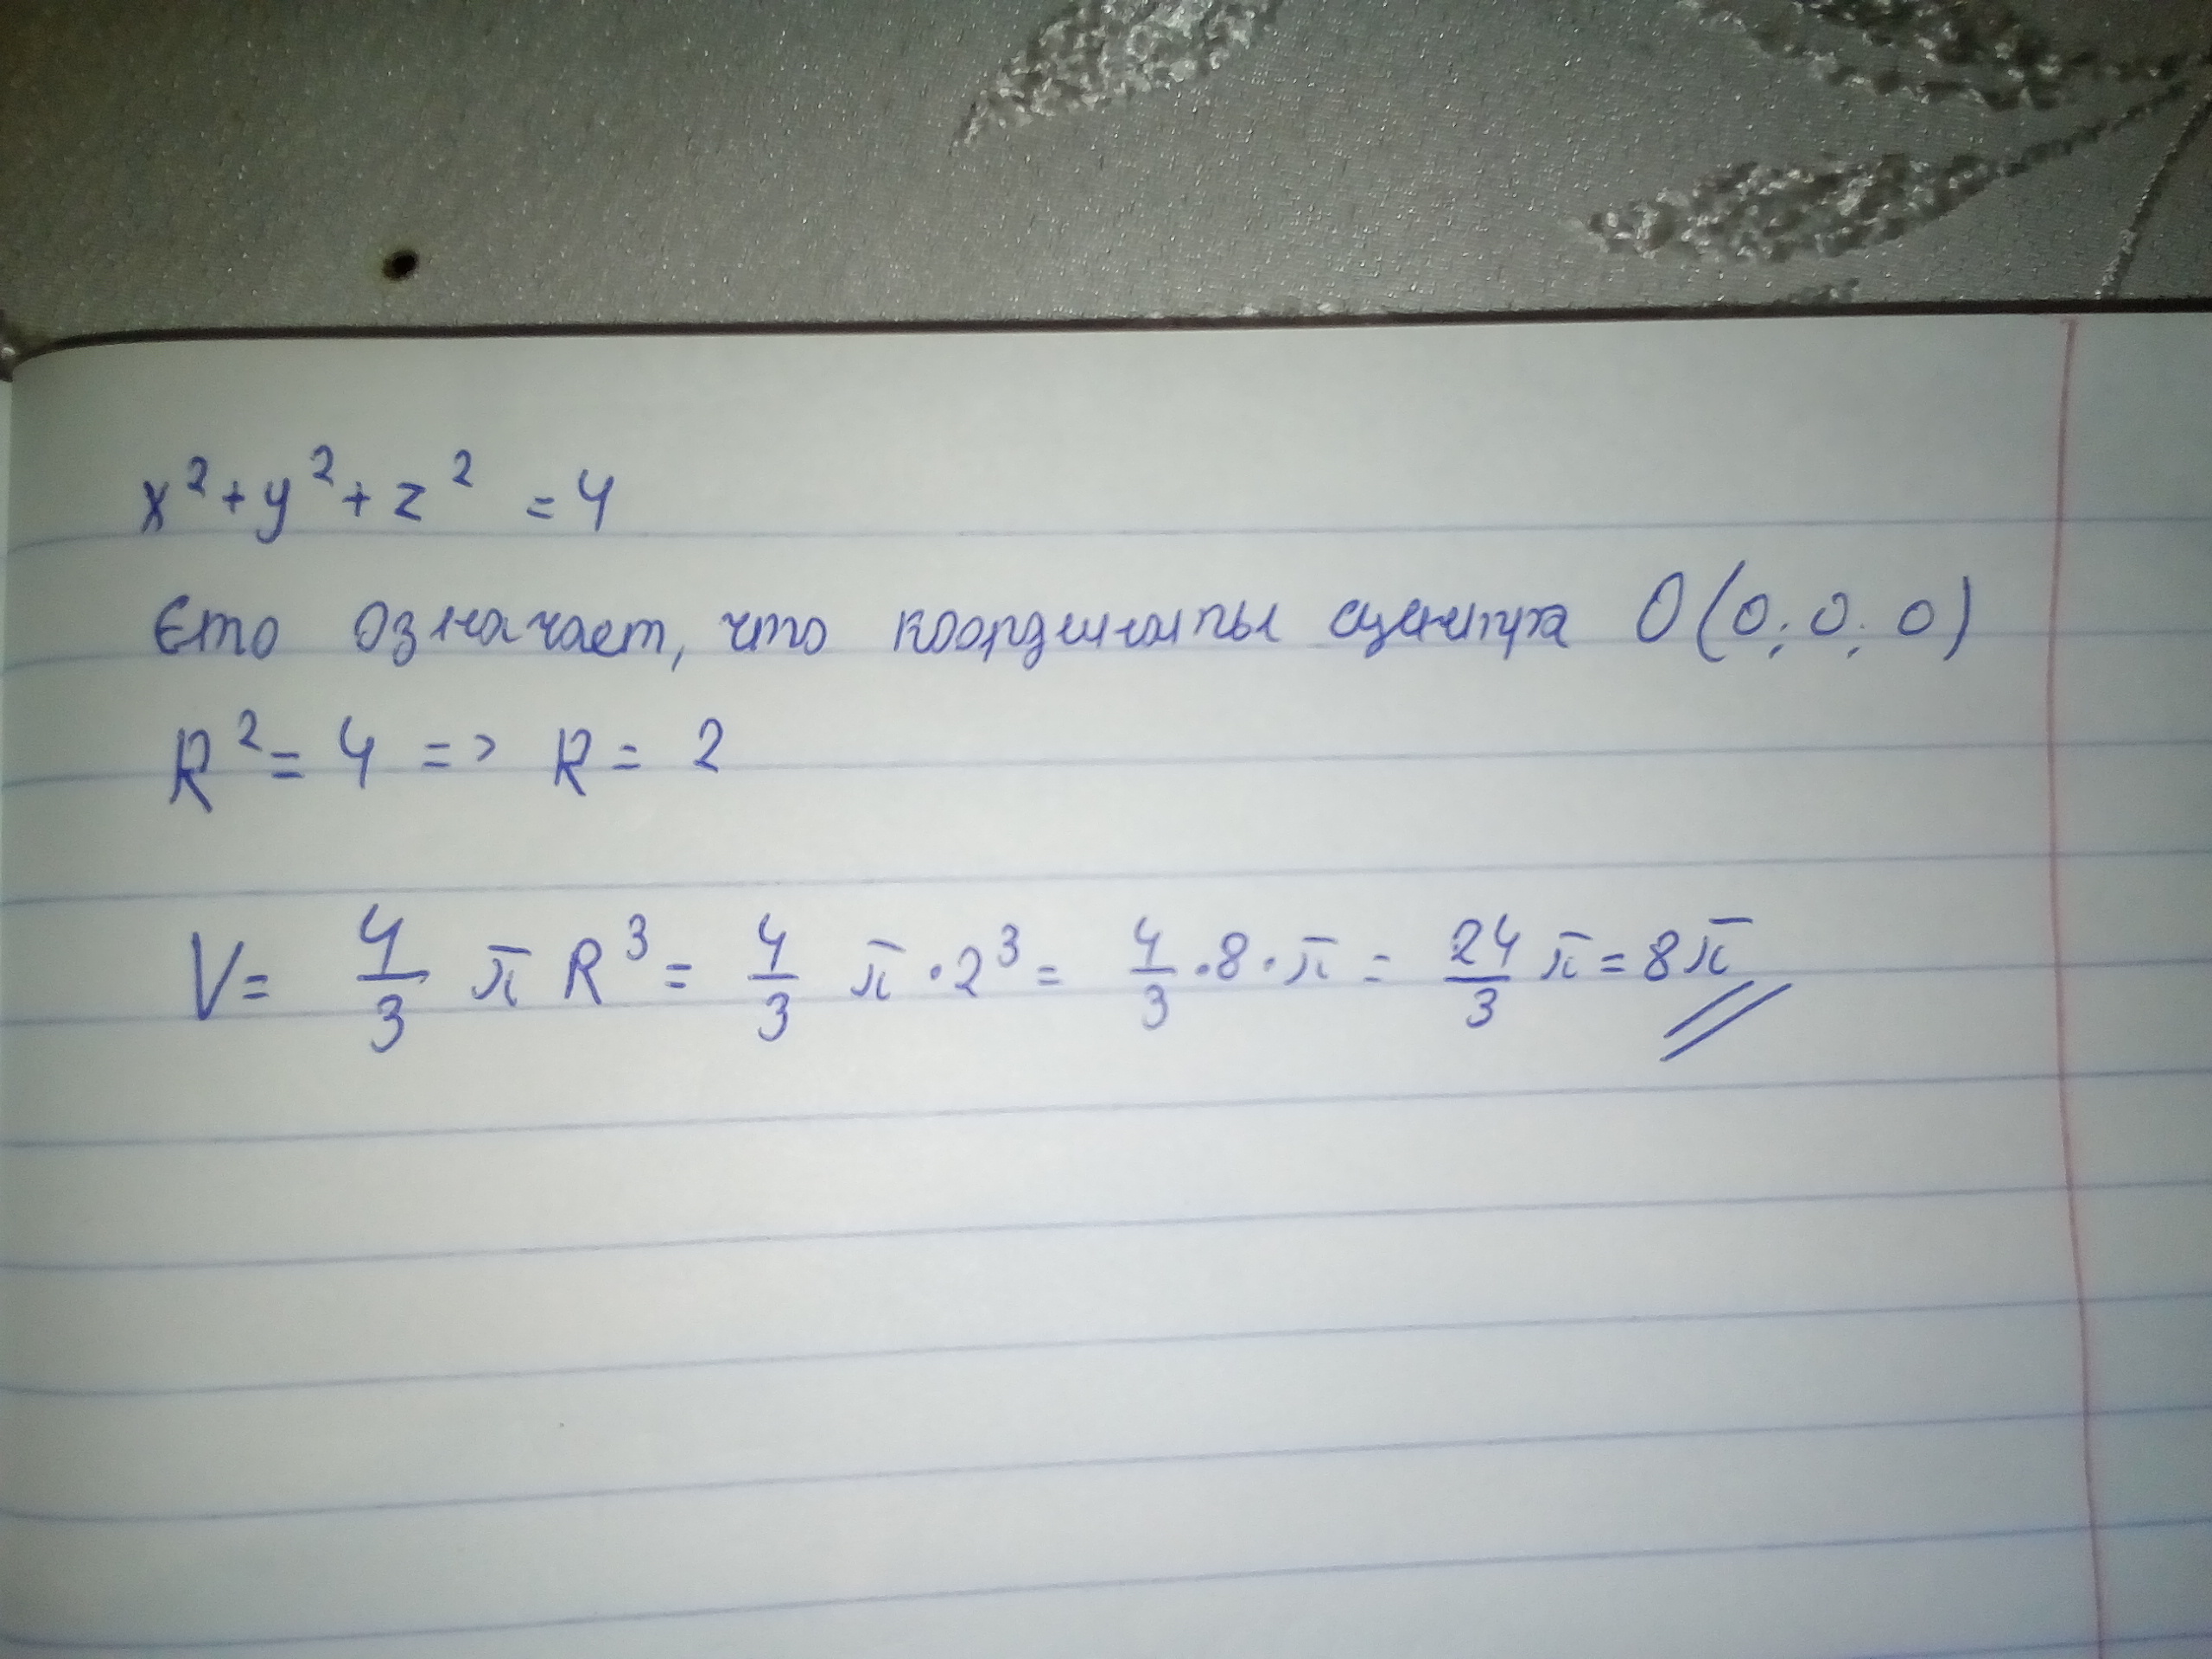 x² + y² + z² = 4
Єто означает, что координаты сцентра O(0; 0; 0)
R² = 4 => R = 2
V = 4/3 π R³ = 4/3 π · 2³ = 4/3 · 8 · π = 24/3 π = 8π